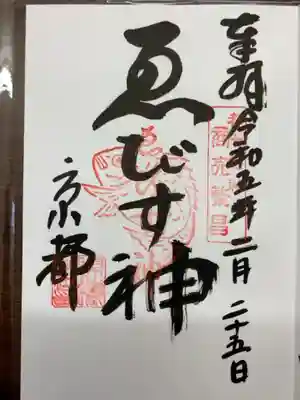 奉拝 令和五年二月二十五日
商売繁昌
ゑびす神
京都